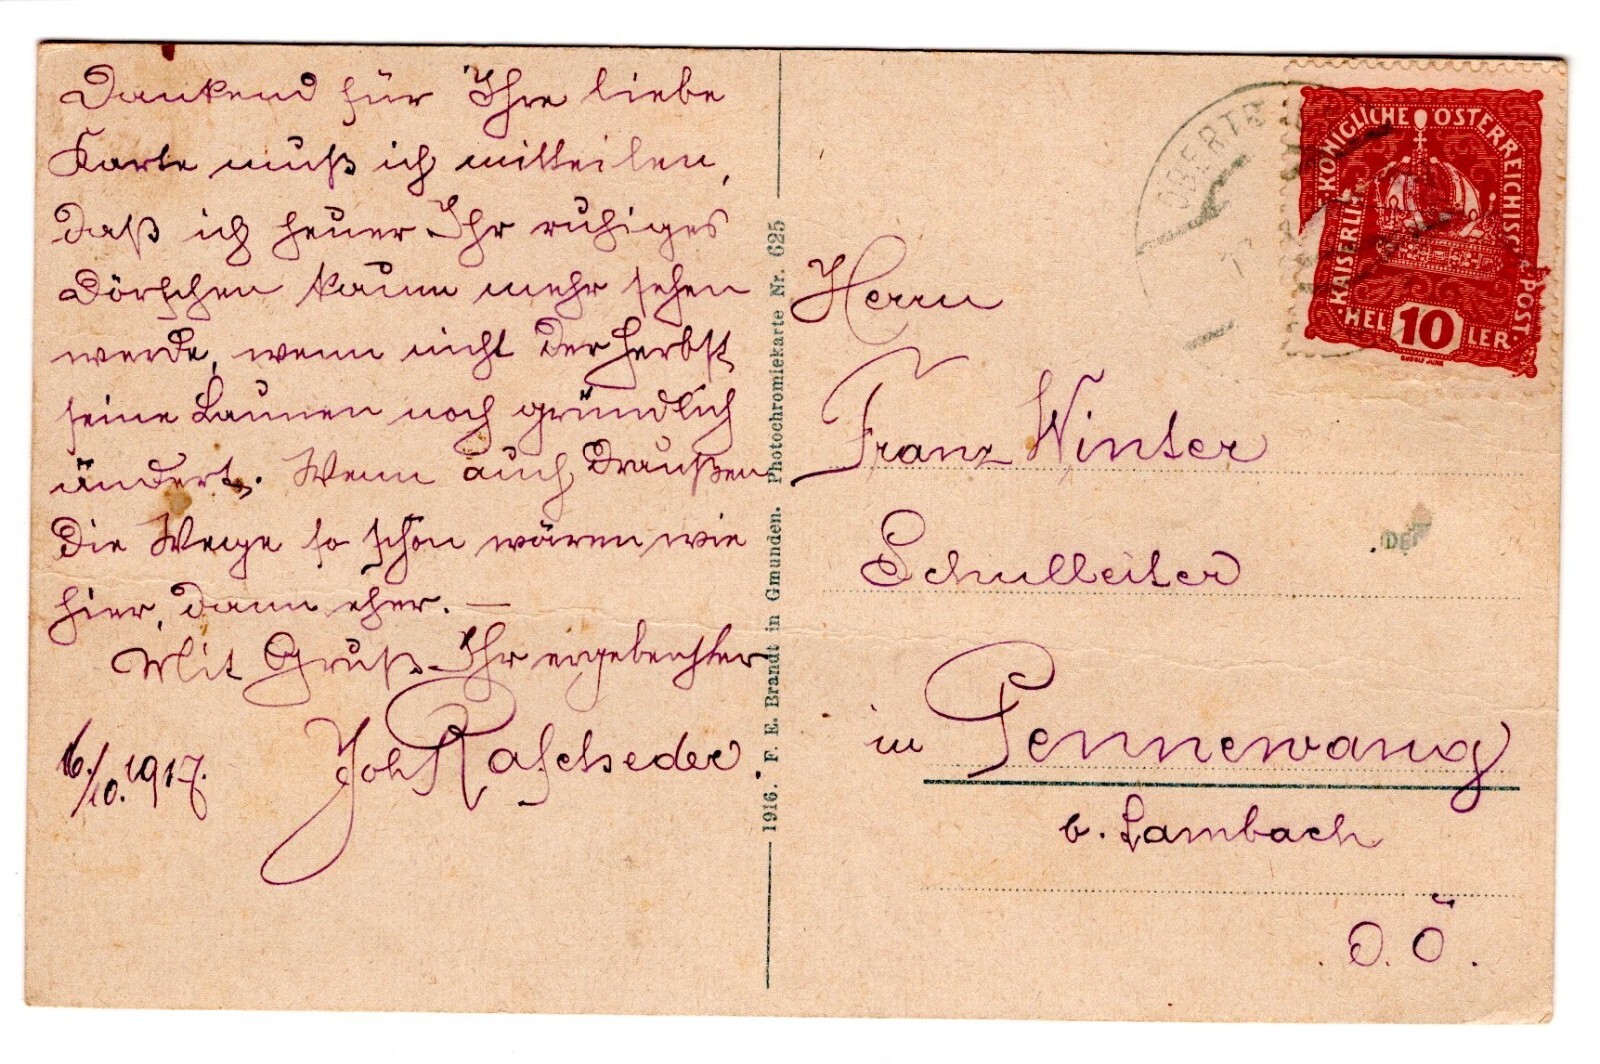 Dankend für Ihre liebe
Karte muß ich mitteilen,
daß ich heuer Ihr ruhiges
Dörfchen kaum mehr sehen
werde, wenn nicht der Herbst
seine Launen noch gründlich
ändert. Wenn auch draußen
die Wege so schön wären wie
hier, dann eher. —
Mit Gruß Ihr ergebenster
Joh Rafetseder
6./10. 1917.
1916. F. E. Brandt in Gmunden. Photochromiekarte Nr. 625
KAISERLICH KÖNIGLICHE ÖSTERREICHISCHE POST
HEL 10 LER
Herrn
Franz Winter
Schulleiter
in Pennewang
b. Lambach
O. Ö.